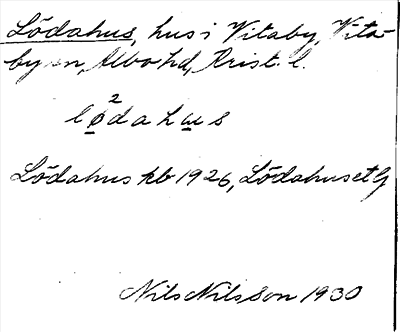 Lödahus, hus i Vitaby, Vita-
by sn, Albo hd, Krist. l.
lø²dahus
Lödahus kb 1926, Lödahuset G
Nils Nilsson 1930